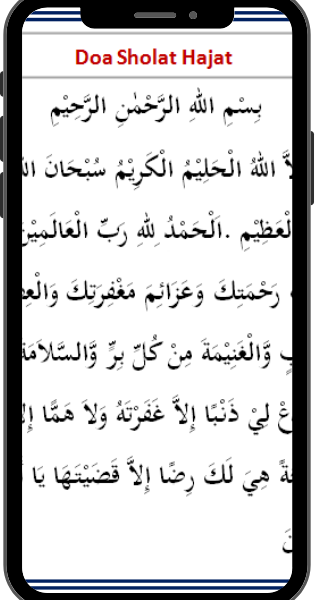 Doa Sholat Hajat
بِسْمِ اللهِ الرَّحْمٰنِ الرَّحِيْمِ
اللهُ الْحَلِيْمُ الْكَرِيْمُ سُبْحَانَ
لْعَظِيْمِ .اَلْحَمْدُ لِلهِ رَبِّ الْعَالَمِيْنَ
رَحْمَتِكَ وَعَزَائِمَ مَغْفِرَتِكَ
وَّالْغَنِيْمَةَ مِنْ كُلِّ بِرٍّ وَّالسَّلاَمَةَ
لِيْ ذَنْبًا إِلاَّ غَفَرْتَهُ وَلاَ هَمًّا
هِيَ لَكَ رِضًا إِلاَّ قَضَيْتَهَا يَا